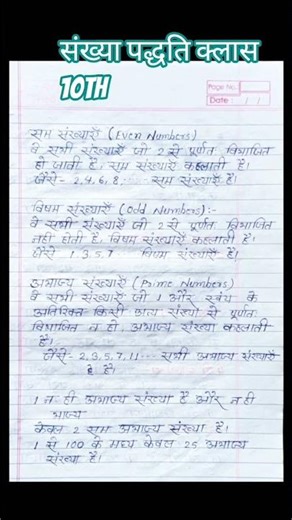 संख्या पद्धति क्लास
10TH
Page No.
Date : / /
सम संख्याएँ (Even Numbers)
वे सभी संख्याएँ जो 2 से पूर्णत विभाजित
हो जाती है, सम संख्याएँ कहलाती है।
जैसे- 2,4,6,8, ---- सम संख्याएँ है।
विषम संख्याएँ (Odd Numbers):-
वे सभी संख्याएँ जो 2 से पूर्णत विभाजित
नही होती है, विषम संख्याएँ कहलाती है।
जैसे 1,3,5,7 विषम संख्याएँ है।
अभाज्य संख्याएँ (Prime Numbers)
वे सभी संख्याएँ जो 1 और स्वंय के
अतिरिक्त किसी अन्य संख्या से पूर्णतः
विभाजित न हो, अभाज्य संख्या कहलाती
है।
जैसे- 2,3,5,7,11--- सभी अभाज्य संख्याएँ
है।
1 न ही अभाज्य संख्या है और न ही
भाज्य
केवल 2 सम अभाज्य संख्या है।
1 से 100 के मध्य केवल 25 अभाज्य
संख्या है।